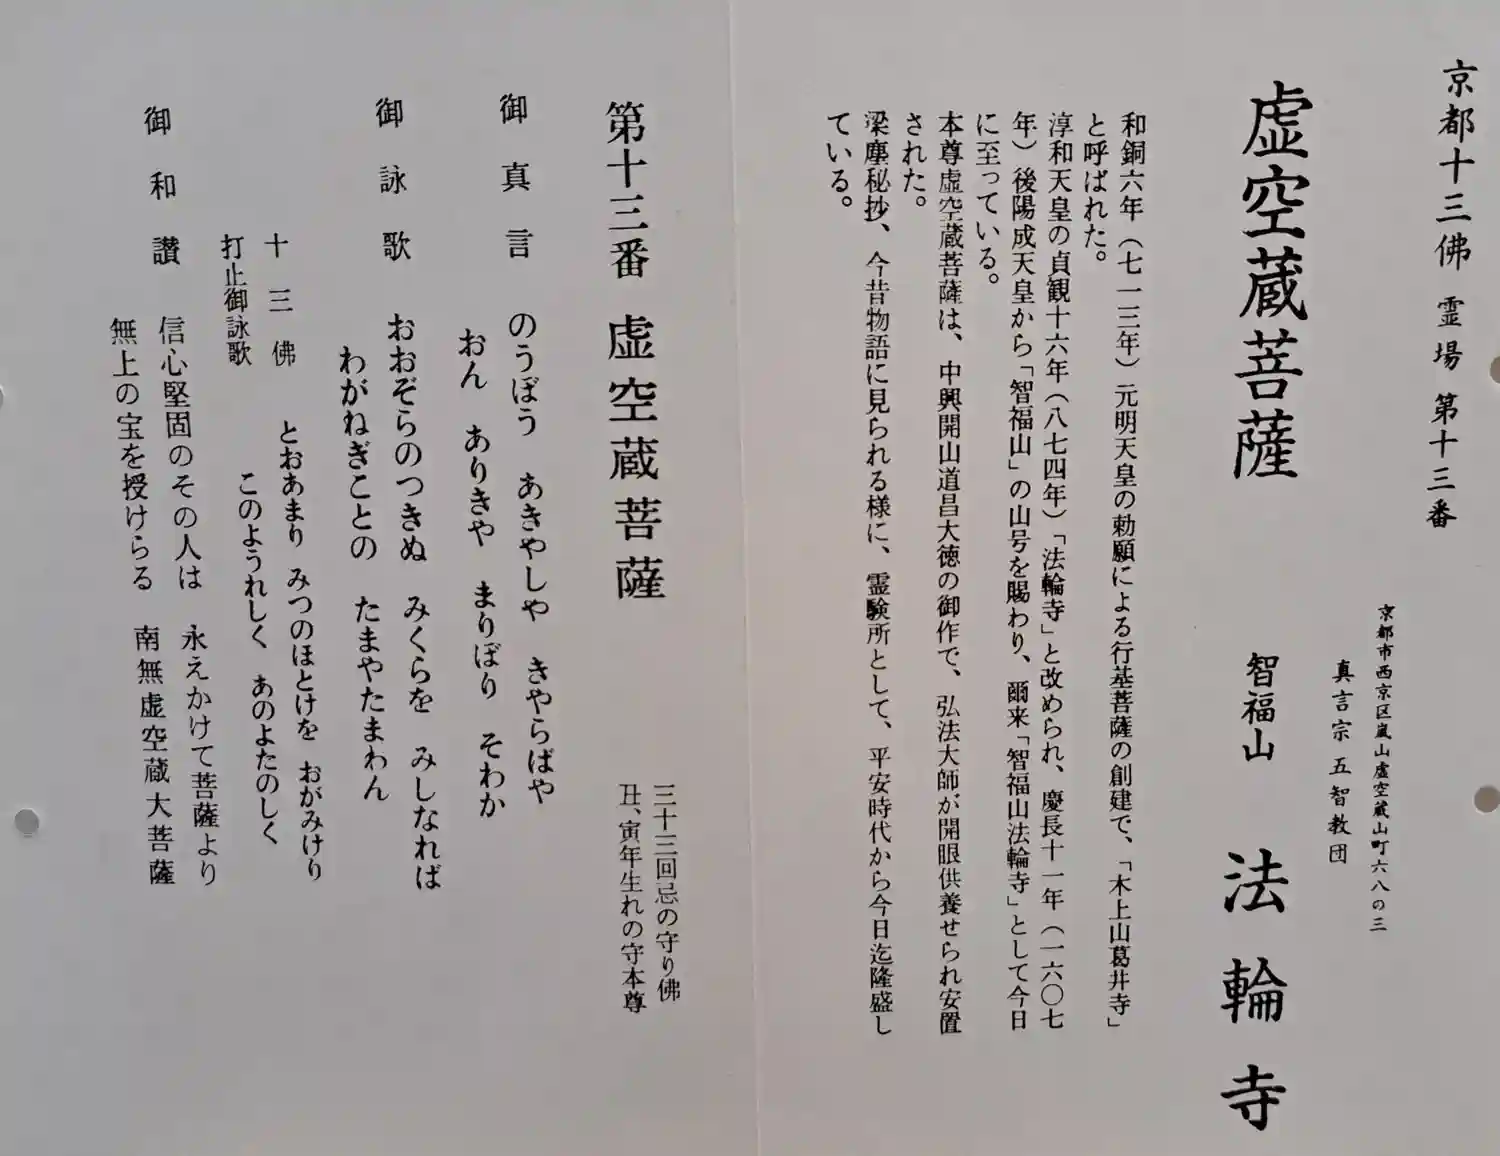 京都十三佛 霊場 第十三番
京都市西京区嵐山虚空蔵山町六八の三
真言宗五智教団
虚空蔵菩薩 智福山 法輪寺
和銅六年（七一三年）元明天皇の勅願による行基菩薩の創建で、「木上山葛井寺」
と呼ばれた。
淳和天皇の貞観十六年（八七四年）「法輪寺」と改められ、慶長十一年（一六〇七
年）後陽成天皇から「智福山」の山号を賜わり、爾来「智福山法輪寺」として今日
に至っている。
本尊虚空蔵菩薩は、中興開山道昌大徳の御作で、弘法大師が開眼供養せられ安置
された。
梁塵秘抄、今昔物語に見られる様に、霊験所として、平安時代から今日迄隆盛し
ている。
第十三番 虚空蔵菩薩
三十三回忌の守り佛
丑、寅年生れの守本尊
御真言
のうぼう あきやしや きやらばや
おん ありきや まりぼり そわか
御詠歌
おおぞらのつきぬ みくらを みしなれば
わがねぎことの たまやたまわん
十三佛
打止御詠歌
とおあまり みつのほとけを おがみけり
このようれしく あのよたのしく
御和讃
信心堅固のその人は 永えかけて菩薩より
無上の宝を授けらる 南無虚空蔵大菩薩